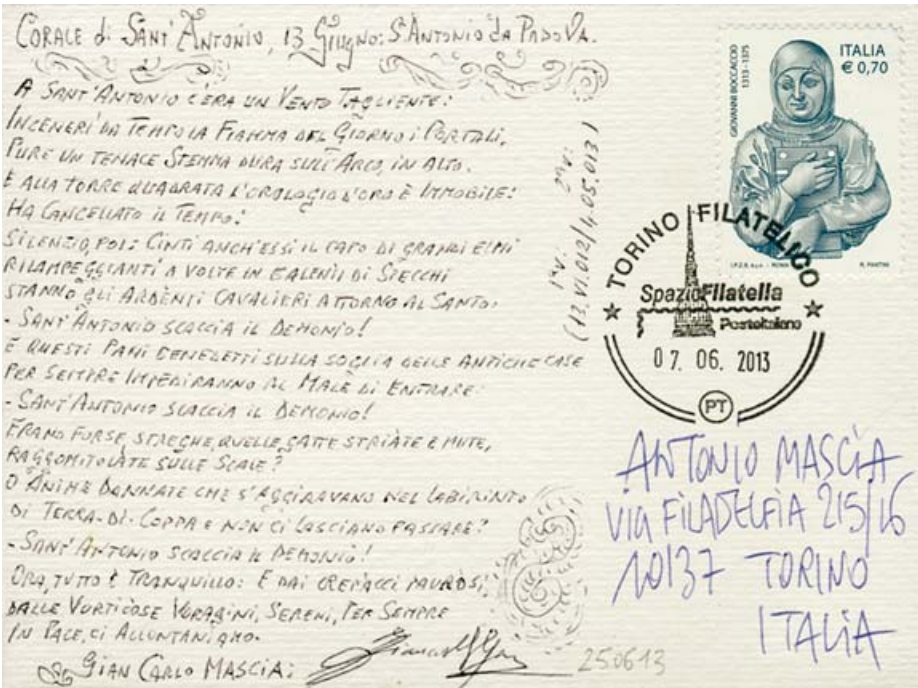 CORALE di SANT'ANTONIO, 13 Giugno: S. ANTONIO da PADOVA.
A SANT'ANTONIO C'ERA UN VENTO TAGLIENTE:
INCENERÌ DA TEMPO LA FIAMMA DEL GIORNO I PORTALI,
PURE UN TENACE STEMMA DURA SULL'ARCO, IN ALTO.
E ALLA TORRE QUADRATA L'OROLOGIO D'ORO È IMMOBILE:
HA CANCELLATO IL TEMPO:
SILENZIO, POI: CINTI ANCH'ESSI IL CAPO DI GRANDI ELMI
RILAMPEGGIANTI A VOLTE IN BALENII DI SPECCHI
STANNO GLI ARDENTI CAVALIERI ATTORNO AL SANTO:
- SANT'ANTONIO SCACCIA IL DEMONIO!
E QUESTI PANI BENEDETTI SULLA SOGLIA DELLE ANTICHE CASE
PER SEMPRE IMPEDIRANNO AL MALE DI ENTRARE:
- SANT'ANTONIO SCACCIA IL DEMONIO!
ERANO FORSE STREGHE, QUELLE GATTE STRIATE E MUTE,
RAGGOMITOLATE SULLE SCALE?
O ANIME DANNATE CHE S'AGGIRAVANO NEL LABIRINTO
DI TERRA-DI-COPPA E NON CI LASCIANO PASSARE?
- SANT'ANTONIO SCACCIA IL DEMONIO!
ORA, TUTTO È TRANQUILLO: E DAI CREPACCI PAUROSI,
DALLE VORTICOSE VORAGINI, SERENI, PER SEMPRE
IN PACE, CI ALLONTANIAMO.
GIAN CARLO MASCIA:
250613
1ª V: 2ª V:
(13.VI.012/4.05.013)
GIOVANNI BOCCACCIO
1313 - 1375
ITALIA
€ 0,70
I.P.Z.S. S.p.A. - ROMA
R. FANTINI
TORINO FILATELICO
SpazioFilatelia
Posteitaliane
07. 06. 2013
PT
ANTONIO MASCIA
VIA FILADELFIA 215/16
10137 TORINO
ITALIA